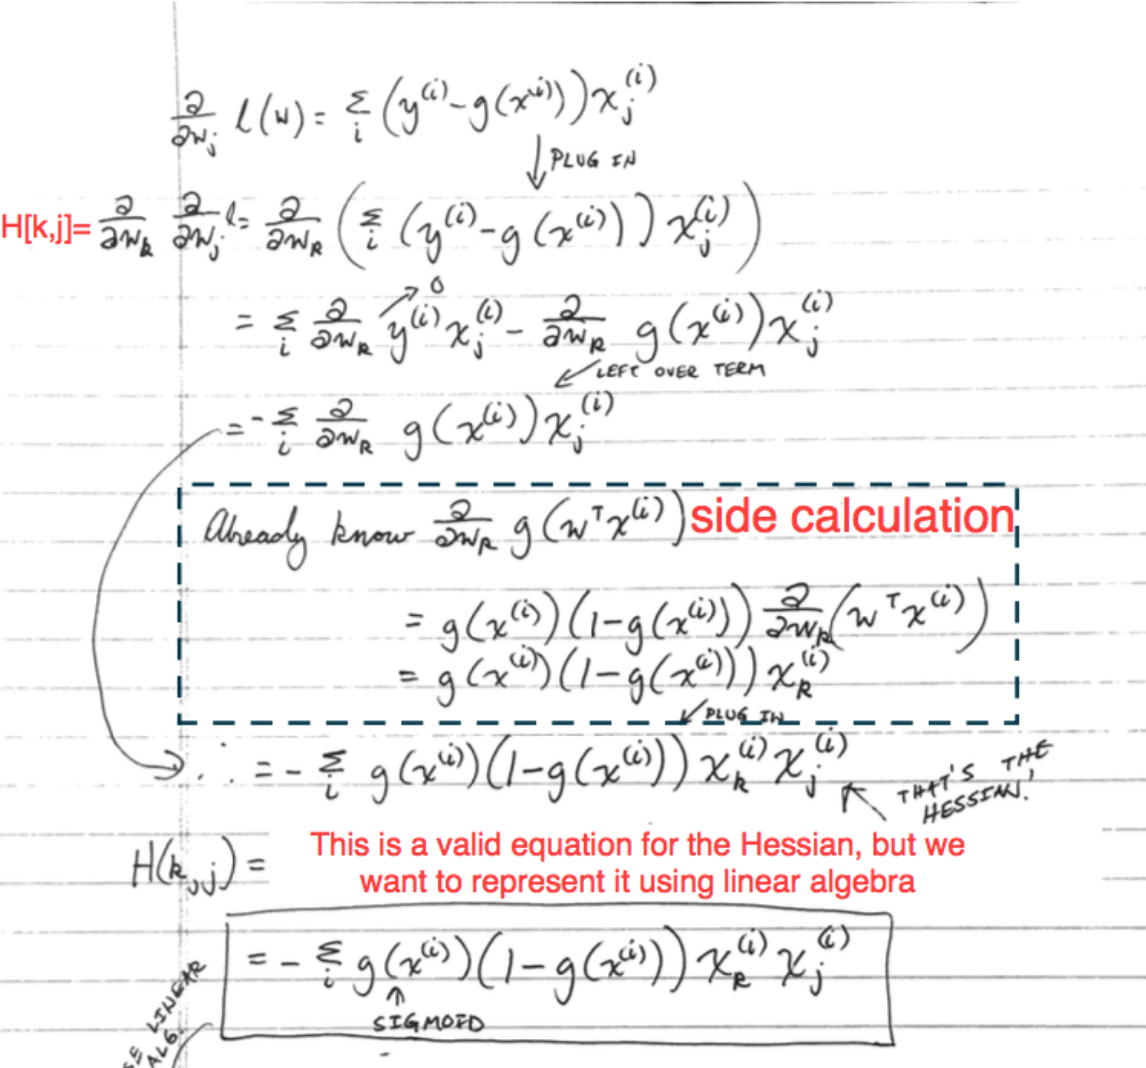 ∂/∂w_j l(w) = Σ_i (y^(i) - g(x^(i))) x_j^(i)
↓ PLUG IN
H[k,j]= ∂/∂w_k ∂/∂w_j l = ∂/∂w_k (Σ_i (y^(i) - g(x^(i))) x_j^(i))
= Σ_i ∂/∂w_k y^(i) x_j^(i) →0 - ∂/∂w_k g(x^(i)) x_j^(i)
↙ LEFT OVER TERM
= -Σ_i ∂/∂w_k g(x^(i)) x_j^(i)
Already know ∂/∂w_k g(w^T x^(i)) side calculation
= g(x^(i))(1-g(x^(i))) ∂/∂w_k (w^T x^(i))
= g(x^(i))(1-g(x^(i))) x_k^(i)
↙ PLUG IN
∴ = -Σ_i g(x^(i))(1-g(x^(i))) x_k^(i) x_j^(i)
↖ THAT'S THE
HESSIAN!
This is a valid equation for the Hessian, but we
want to represent it using linear algebra
H(k,j) =
= -Σ_i g(x^(i))(1-g(x^(i))) x_k^(i) x_j^(i)
↑
SIGMOID
LINEAR
ALG.